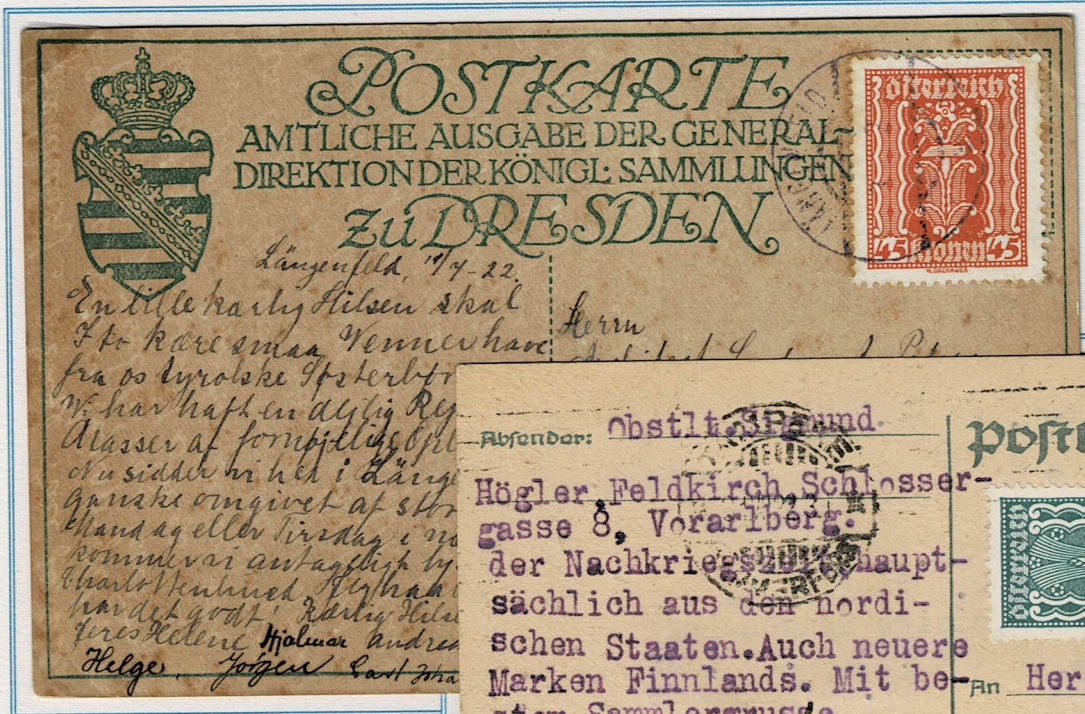 POSTKARTE
AMTLICHE AUSGABE DER GENERAL-
DIREKTION DER KÖNIGL: SAMMLUNGEN
ZU DRESDEN
Österreich
45 Kronen 45
W.DACHAUER
Längenfeld, 7-22.
En lille kærlig Hilsen skal
I to kære smaa Venner have
fra os tyrolske
Vi har haft en dejlig
Masser af fornøjelige
Nu sidder vi her i Længe
ganske omgivet af stor
Mandag eller Tirsdag i
kommer vi antagelig
Charlottenlund
har det godt! Kærlig Hils
Jeres Helene Hjalmar
Helge. Jørgen
Herrn
Absender: Obstlt.Sigmund
Högler,Feldkirch,Schlosser-
gasse 8, Vorarlberg.
der Nachkriegszeit,haupt-
sächlich aus den nordi-
schen Staaten.Auch neuere
Marken Finnlands. Mit be-
stem Sammlergrusse
Postk
Österreich
An Her